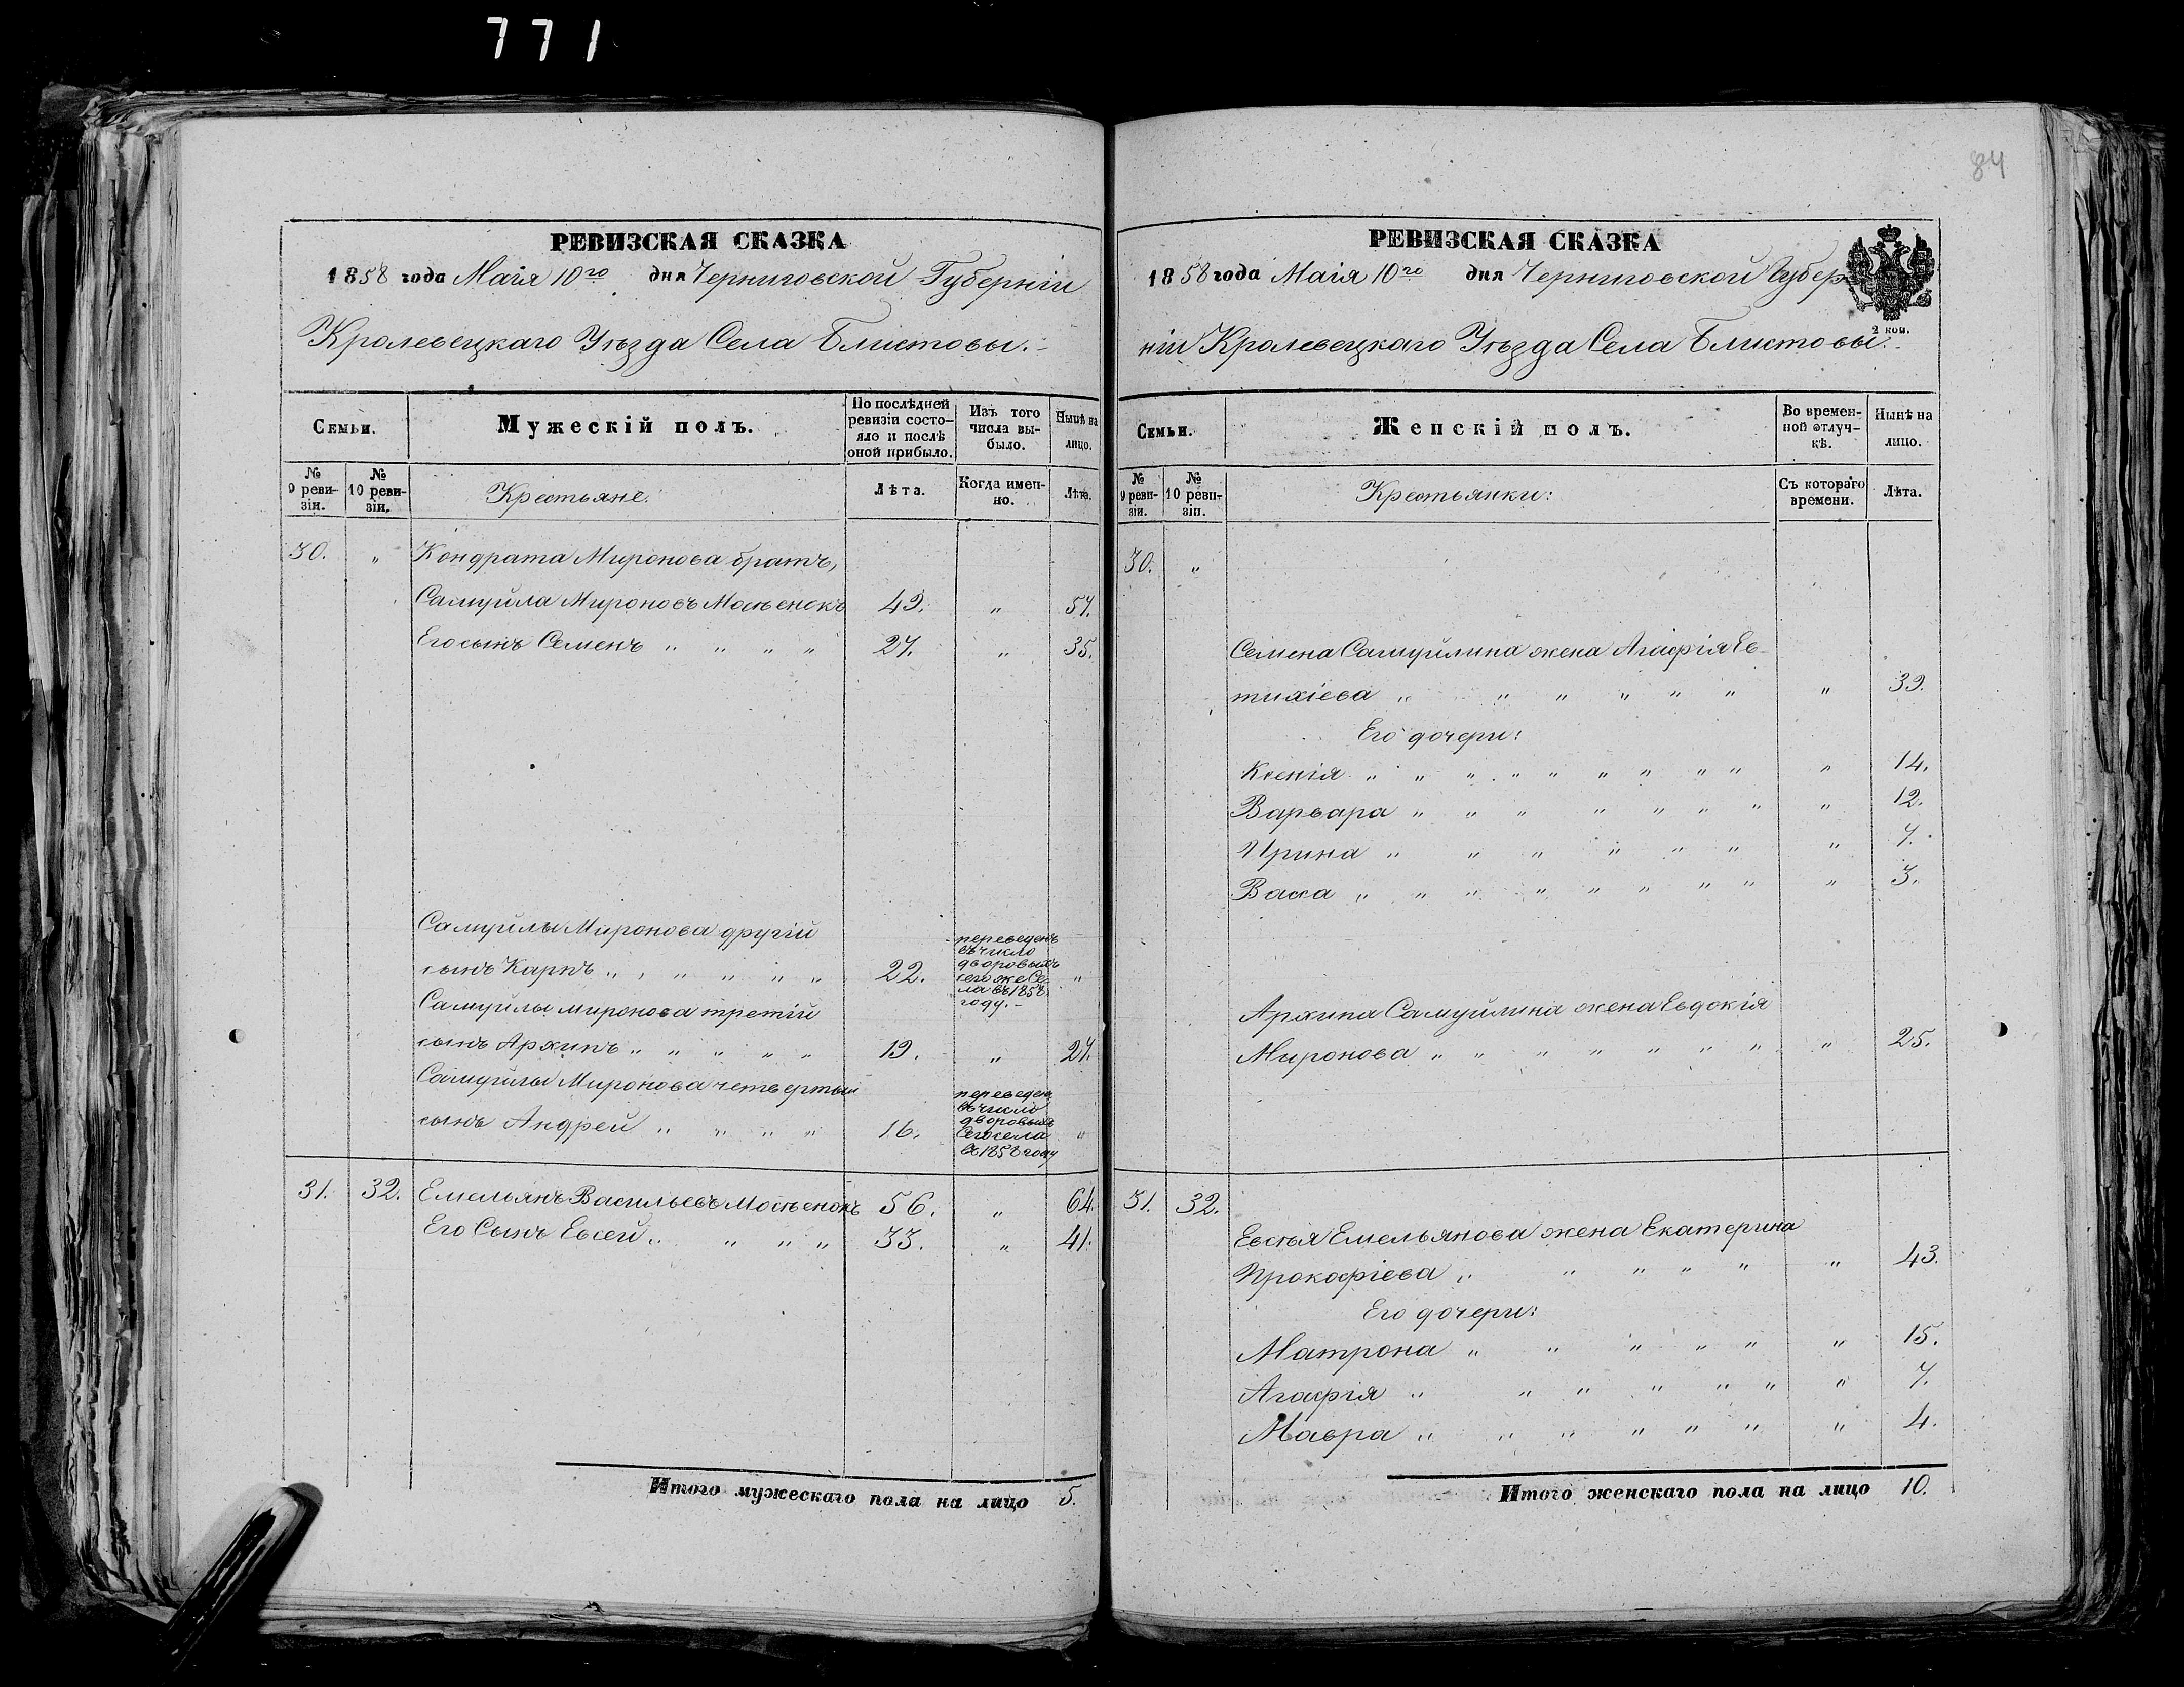 771
84
РЕВИЗСКАЯ СКАЗКА
1858 года Маія 10го дня Черниговской Губерніи
Кролевецкаго Уѣзда Села Блистовы.
Семьи.
Мужескій полъ.
По послѣдней
ревизіи состо-
яло и послѣ
оной прибыло.
Изъ того
числа вы-
было.
Нынѣ на
лицо.
№
9 реви-
зіи.
№
10 реви-
зіи.
Крестьяне:
Лѣта.
Когда имен-
но.
Лѣта.
30. " Кондрата Миронова братъ,
Самуйла Мироновъ Мосѣенокъ 49. " 57.
Его сынъ Семенъ " " " " 27. " 35.
Самуйлы Миронова другій
сынъ Карпъ " " " " " " 22. "
переведенъ
въ число
дворовыхъ
сего же Се-
ла въ 1858
году.
Самуйлы Миронова третій
сынъ Архипъ " " " " " 19. " 27.
Самуйлы Миронова четвертый
сынъ Андрей " " " " 16. "
переведен
въ число
дворовыхъ
сего села
въ 1858 году
31. 32. Емельянъ Васильевъ Мосѣенокъ 56. " 64.
Его Сынъ Евсей " " " " 33. " 41.
Итого мужескаго пола на лицо 5.
РЕВИЗСКАЯ СКАЗКА
1858 года Маія 10го дня Черниговской Губер-
2 коп.
ніи Кролевецкаго Уѣзда Села Блистовы.
Семьи.
Женскій полъ.
Во времен-
ной отлуч-
кѣ.
Нынѣ на
лицо.
№
9 реви-
зіи.
№
10 реви-
зіи.
Крестьянки:
Съ котораго
времени.
Лѣта.
30. "
Семена Самуйлина жена Агафія Ев-
тихіева " " " " " " " 39.
Его дочери:
Ксенія " " " " " " " " " " 14.
Варвара " " " " " " " " 12.
Ирина " " " " " " " 7.
Васса " " " " " " " " " 3.
Архипа Самуйлина жена Евдокія
Миронова " " " " " " " " 25.
31. 32.
Евсѣя Емельянова жена Екатерина
Прокофіева " " " " " " 43.
Его дочери:
Матрона " " " " " " 15.
Агафія " " " " " " " 7.
Мавра " " " " " " " 4.
Итого женскаго пола на лицо 10.